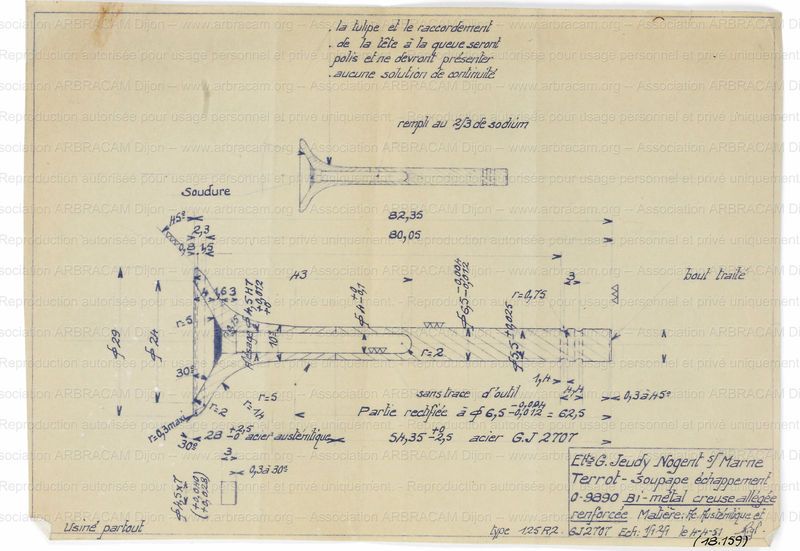 . la tulipe et le raccordement
. de la tête à la queue seront
polis et ne devront présenter
. aucune solution de continuité
rempli au 2/3 de sodium
Soudure
45°
2,3
0,8 1,5
82,35
80,05
bout traité
r=0,75
3
ϕ 29
ϕ 24
r=5
30°
Alésage ϕ 4,5 H7 +0,012 +0
10°
ϕ 4 +0 -0,1
ϕ 6,5 -0,004 -0,012
ϕ 5,5 +0,025
r=2
1,4
4,4
0,3 à 45°
r=0,3 maxi
r=2
r=5
sans trace d'outil
Partie rectifiée à ϕ 6,5 -0,004 -0,012 = 62,5
30°
28 +2,5 -0 acier austénitique
54,35 +0 -2,5 acier G.J 2707
3
0,3 à 30°
ϕ 4,5 x7
(+0,028)
Ets G. Jeudy Nogent s/ Marne
Terrot - Soupape échappement
0-9890 Bi-métal creuse allégée
renforcée Matière: Ac Austénitique et
Usiné partout
type 125 R2. GJ2707 Ech: 1/1-2/1 le 4-4-51
(18.159)
Association ARBRACAM Dijon – www.arbracam.org
Reproduction autorisée pour tout usage personnel et privé uniquement